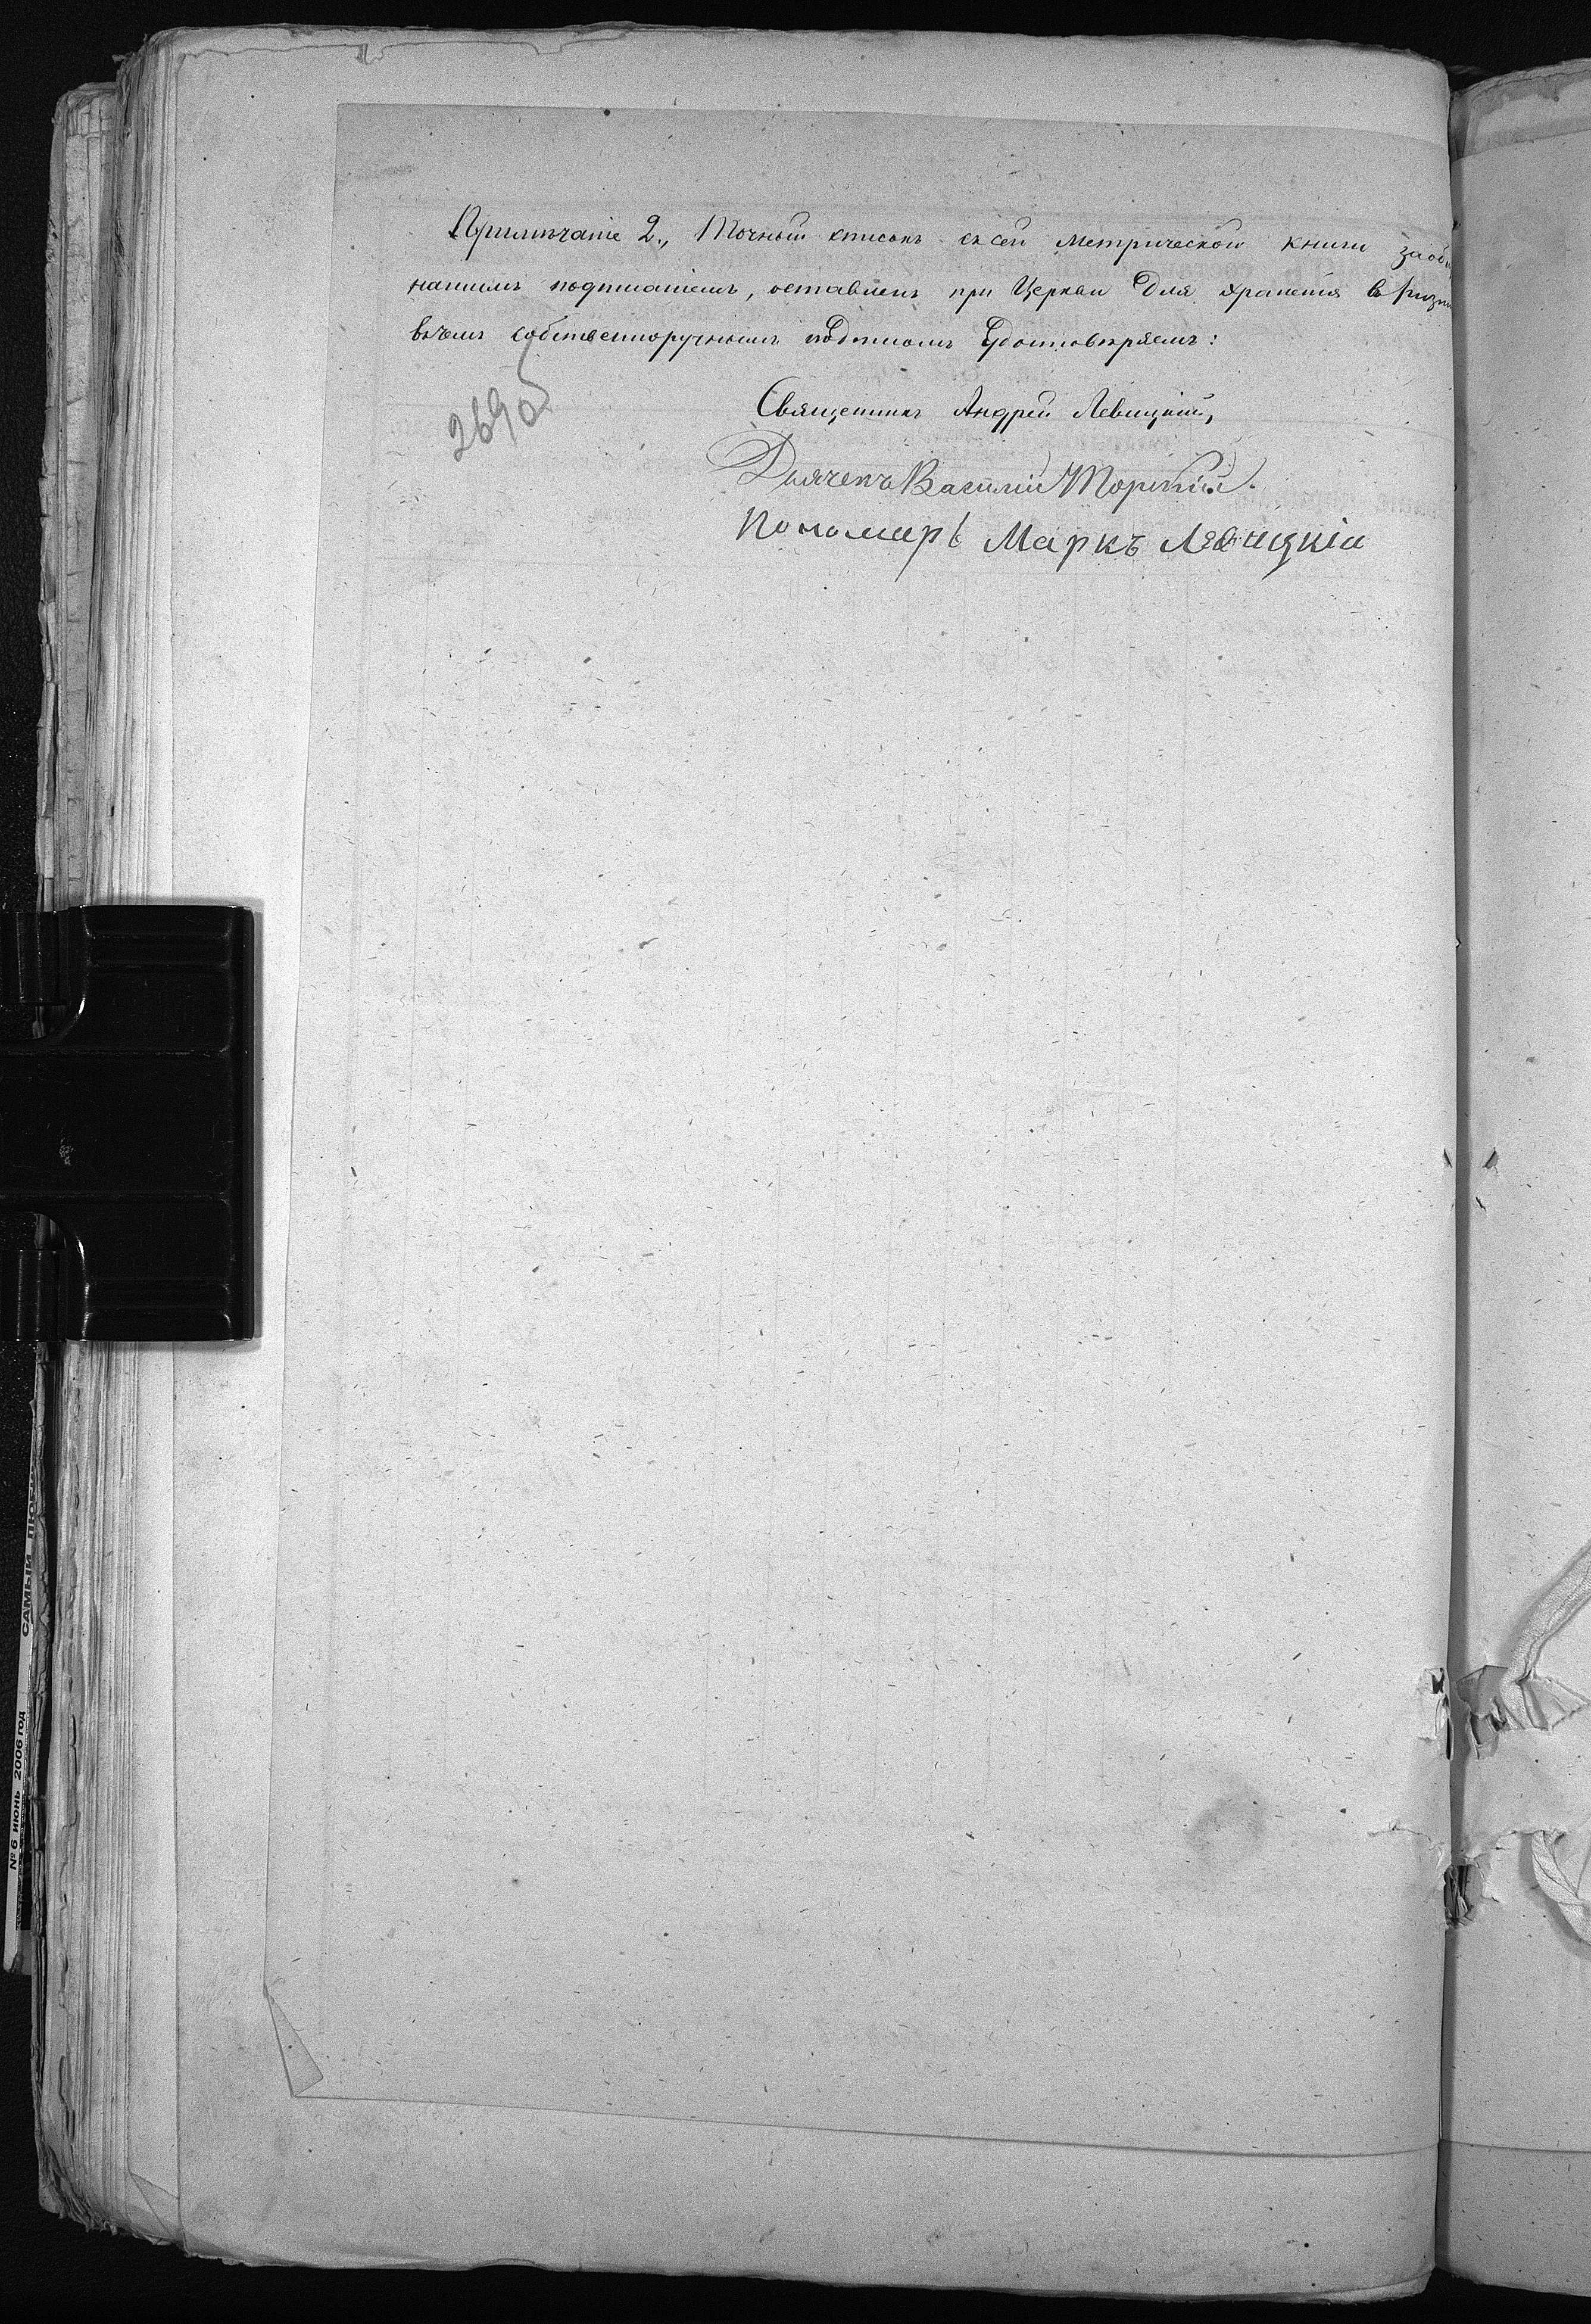 Примѣчаніе 2., Точный списокъ съ сей Метрической книги за об
нашимъ подписаніемъ, оставленъ при Церкви для храненія въ ризн
въчемъ собственноручнымъ подписомъ удостовѣряемъ:
269об
Священникъ Андрей Левицкій,
Дьячекъ Василій Торскій.
Пономарь Маркъ Левицкій
САМЫЙ ЛЮБ
№ 6 ИЮНЬ 2006 ГОД